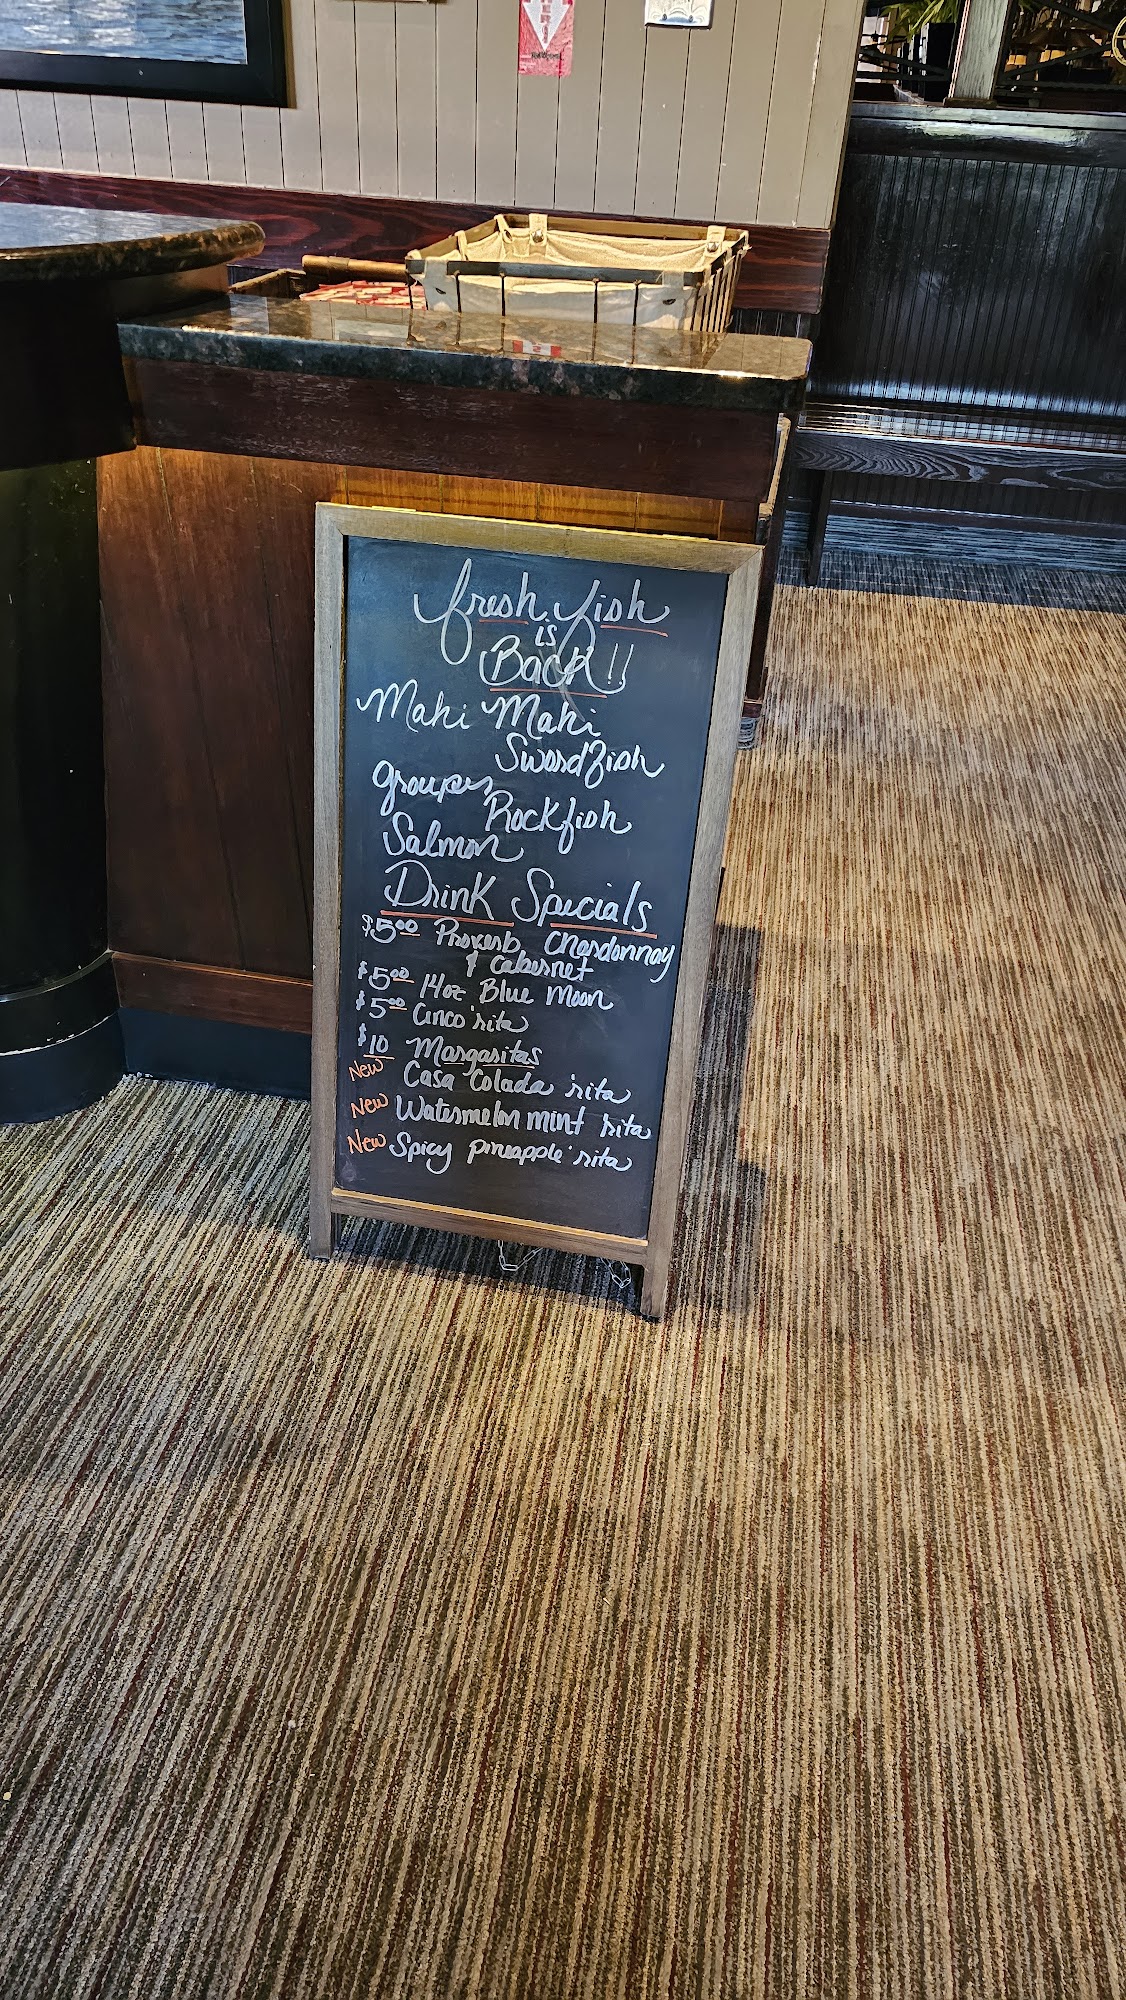 fresh fish
is
Back!!
Mahi Mahi
Swordfish
grouper
Rockfish
Salmon
Drink Specials
$5.00 Proverb Chardonnay
& Cabernet
$5.00 14oz Blue Moon
$5.00 Cinco 'rita
$10 Margaritas
New Casa Colada 'rita
New Watermelon mint 'rita
New Spicy pineapple 'rita